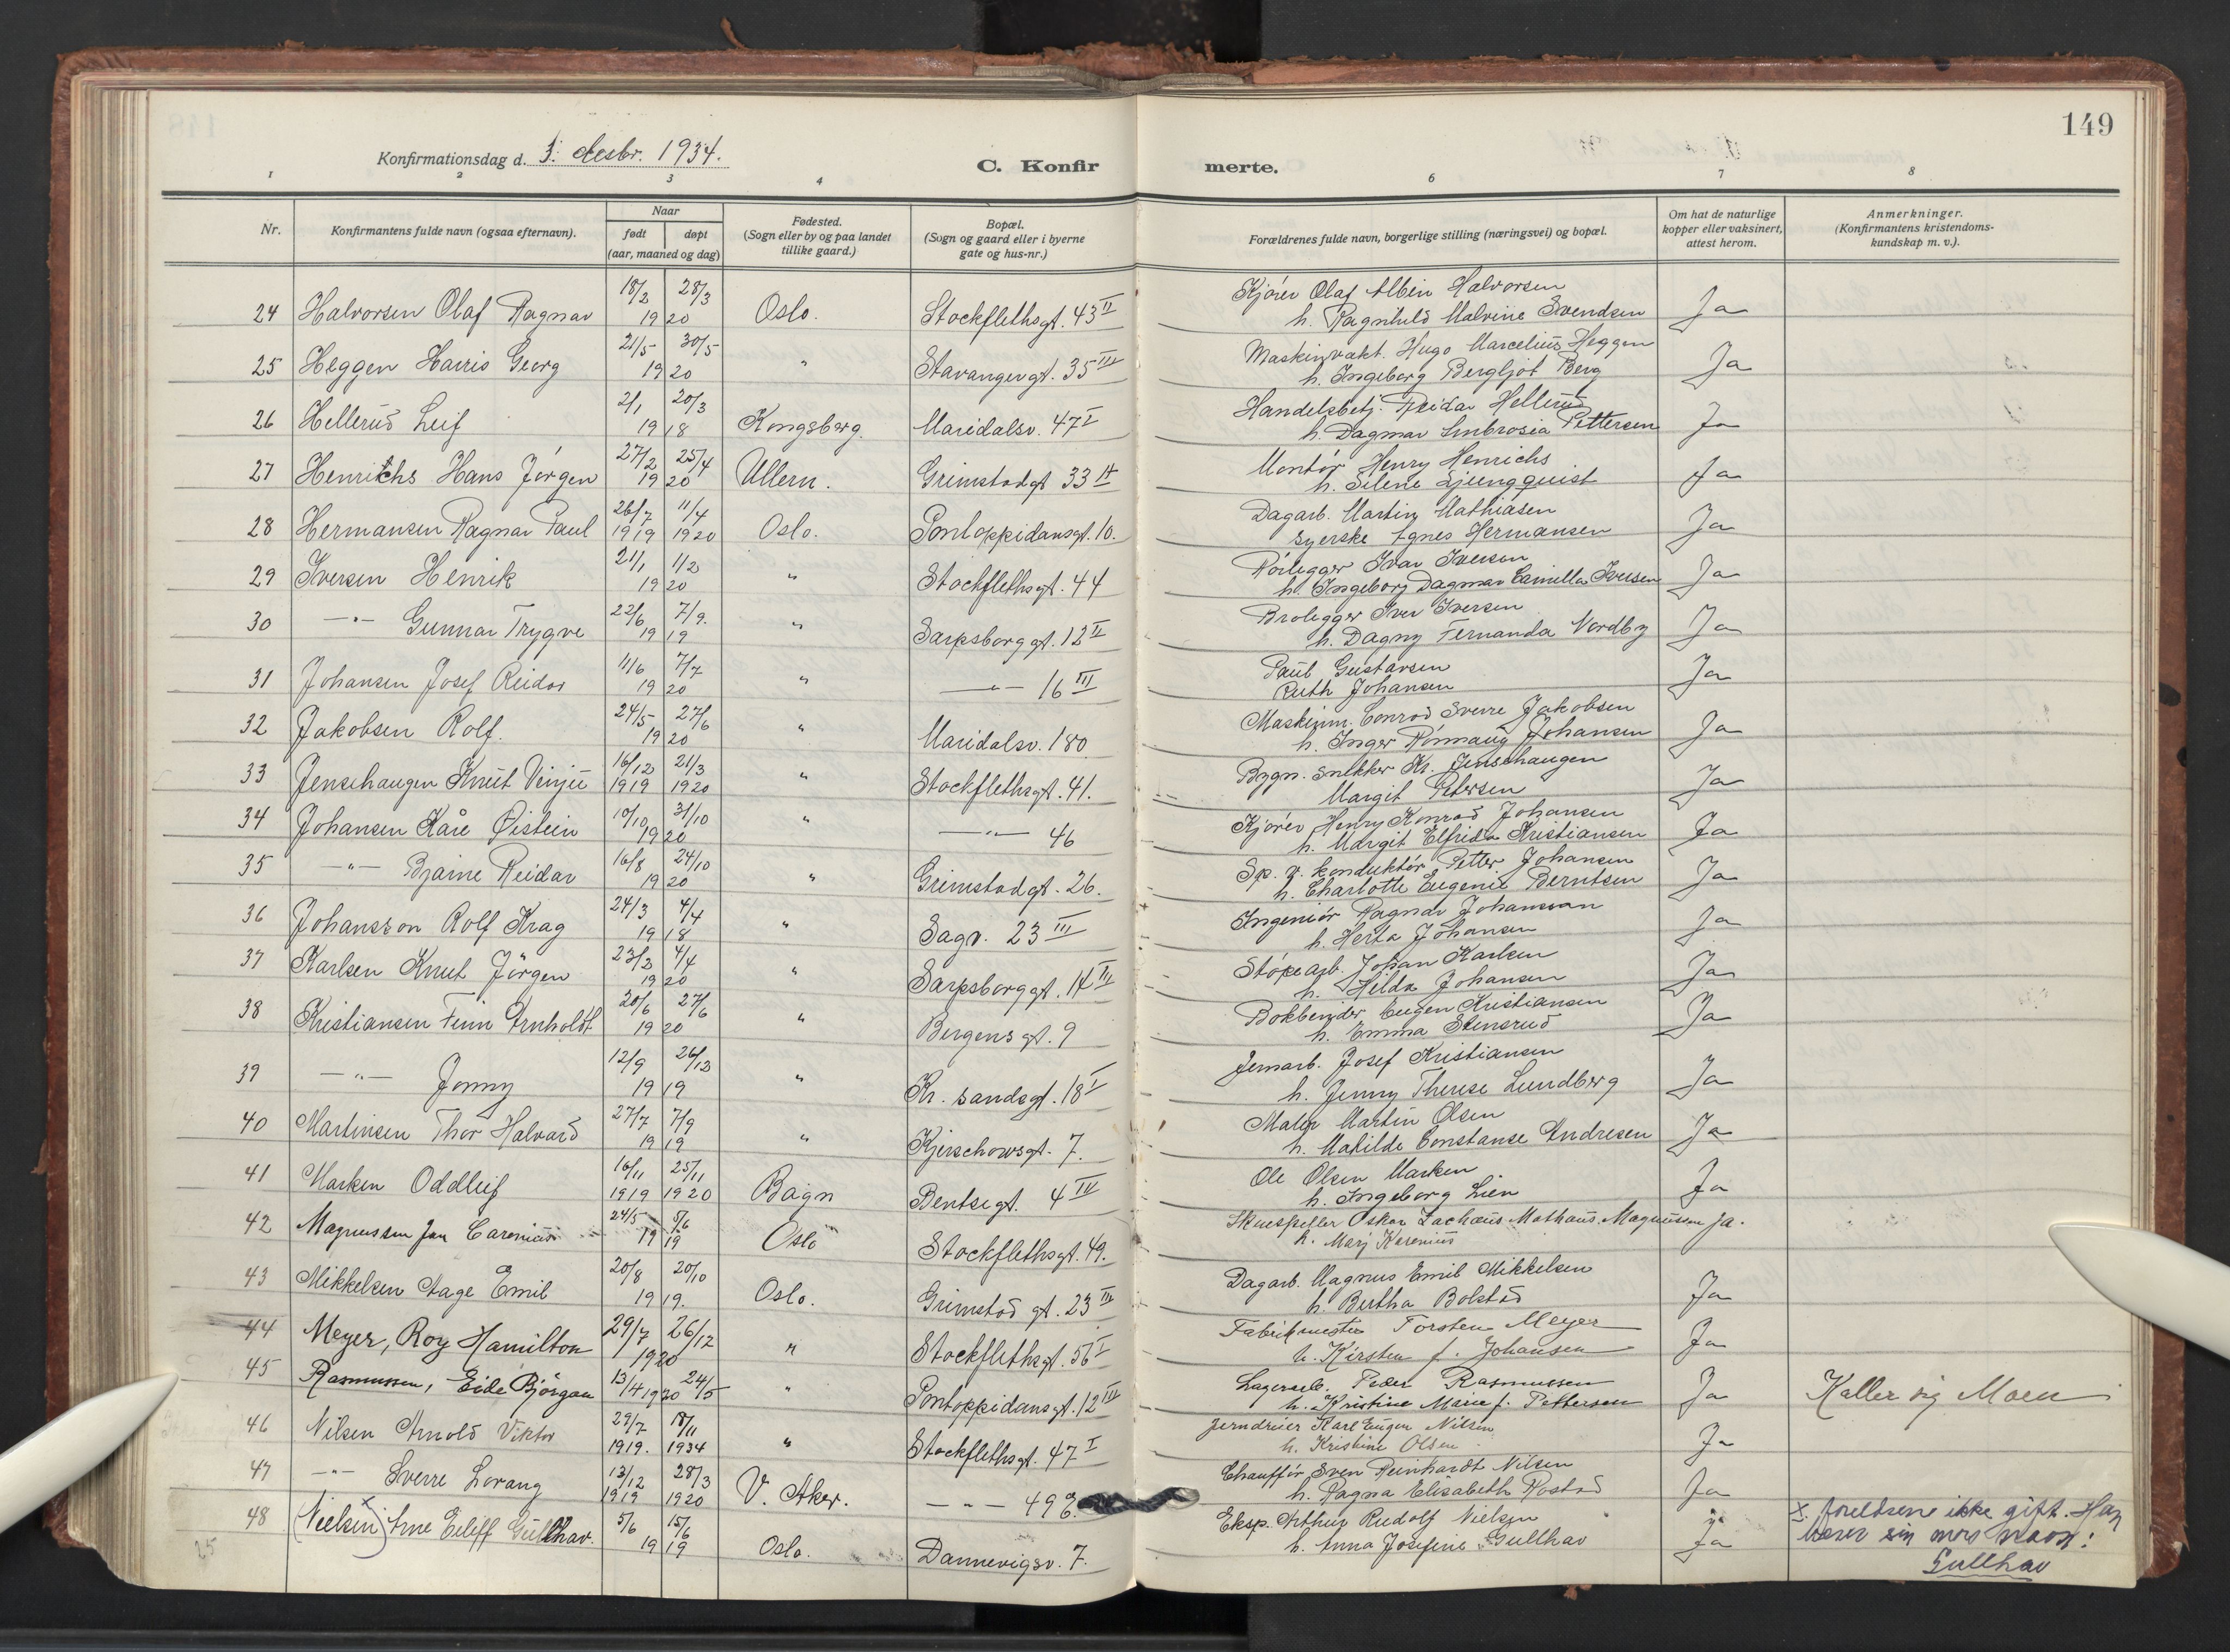 149
Konfirmationsdag d. desbr. 1934.
C. Konfirmerte.
1 2 3 4 5 6 7 8
Nr.
Konfirmantens fulde navn (ogsaa efternavn).
Naar
født døpt
(aar, maaned og dag)
Fødested.
(Sogn eller by og paa landet
tillike gaard.)
Bopæl.
(Sogn og gaard eller i byerne
gate og hus-nr.)
Forældrenes fulde navn, borgerlige stilling (næringsvei) og bopæl.
Om hat de naturlige
kopper eller vaksinert,
attest herom.
Anmerkninger.
(Konfirmantens kristendoms-
kundskap m. v.).
24 Halvorsen Olaf Ragnar 18/2 28/3 1920 Oslo. Stockflethsgt. 43 II Kjörer Olaf Albin Halvorsen Ja
h. Ragnhild Malvine Svendsen
25 Heggen Harris Georg 21/5 30/5 1920 " Stavangergt. 35 III Maskinvakt. Hugo Marcelius Heggen Ja
h. Ingeborg Bergljot Berg
26 Hellerud Leif 2/1 20/3 1918 Kongsberg. Maridalsv. 47 I Handelsbetj. Reidar Hellerud Ja
h. Dagmar Ambrosia Pettersen
27 Henrichs Hans Jörgen 27/2 25/4 1920 Ullern. Grimstadgt 33 II Montör Henry Henrichs Ja
h. Silene Ljungquist
28 Hermansen Ragnar Paul 26/7 1919 11/4 1920 Oslo. Pontoppidansgt. 10. Dagarb. Martin Mathiasen Ja
Syerske Agnes Hermansen
29 Iversen Henrik 21/1 1/2 1920 " Stockflethsgt. 44 Rörlegger Ivar Iversen Ja
h. Ingeborg Dagmar Camilla Iversen
30 -"- Gunnar Trygve 22/6 7/9. 1919 " Sarpsborggt. 12 II Brolegger Iver Iversen Ja
h. Dagny Fernanda Nordby
31 Johansen Josef Reidar 11/6 7/7 1920 " -"- 16 III Paul Gustavsen Ja
Ruth Johansen
32 Jakobsen Rolf. 24/5 27/6 1920 " Maridalsv. 180 Maskinm. Conrad Sverre Jakobsen Ja
h. Inger Rönnaug Johansen
33 Jensehaugen Knut Vinju 16/12 1919 21/3 1920 " Stockflethsgt. 41. Bygn. snekker Kr. Jensehaugen Ja
Margit Petersen
34 Johansen Kåre Øistein 10/10 31/10 1920 " -"- 46 Kjörer Henry Konrad Johansen Ja
h. Margit Elfrida Kristiansen
35 -"- Bjarne Reidar 16/8 24/10 1920 " Grimstadgt. 26. Sp. v. konduktör Petter Johansen Ja
h. Charlotte Eugenie Berntsen
36 Johansson Rolf Krag 24/3 4/4 1918 " Sagv. 23 III Ingeniör Ragnar Johansson Ja
h. Herta Johansen
37 Karlsen Knut Jörgen 23/2 4/4 1920 " Sarpsborggt. 14 II Stöpearb. Johan Karlsen Ja
h. Hilda Johansen
38 Kristiansen Finn Arnholdt 20/6 27/6 1920 " Bergensgt. 9 Bokbinder Eugen Kristiansen Ja
h. Emma Stensrud
39 -"- Jonny 12/9 26/12 1919 " Kr. sandsgt. 18 I Jernarb. Josef Kristiansen Ja
h. Jenny Therese Lundberg
40 Martinsen Thor Halvard 27/7 7/9 1919 " Kjerschowsgt. 7. Maler Martin Olsen Ja
h. Matilde Constanse Andresen
41 Marken Oddleif 16/11 1919 25/11 1920 Bagn Bentsegt. 4 III Ole Olsen Marken Ja
h. Ingeborg Lien
42 Magnussen Jan Carenius 24/5 5/6 1919 Oslo Stockflethsgt. 49. Skuespiller Oskar Zachæus Mathæus Magnussen Ja.
h. Marj Kerenius
43 Mikkelsen Aage Emil 20/8 20/10 1919. Oslo. Grimstad gt. 23 III Dagarb. Magnus Emil Mikkelsen Ja
h. Bertha Bolstad
44 Meyer, Roy Hamilton 29/7 26/12 1920 " Stockflethsgt. 56 I Fabrikmester Torsten Meyer Ja
h. Kirsten f. Johansen
45 Rasmussen, Eide Björgan 13/4 1920 24/5 " Pontoppidansgt. 12 III Lagerarb. Peder Rasmussen Ja Kaller sig Moen
h. Kristine Marie f. Pettersen
46 Nilsen Arnold Viktor 29/7 1919. 18/11 1934 " Stockflethsgt. 47 I Jerndreier Karl Eugen Nilsen Ja
h. Kristine Olsen
47 -"- Sverre Lorang 13/12 1919 28/3 1920 V. Aker. -"- 49 Chaufför Sven Reinhardt Nilsen Ja
h. Ragna Elisabeth Rostad
48 (Nielsen) x Arne Eiliff Gullhav. 5/6 15/6 1919 Oslo. Dannevigsv. 7. Eksp. Arthur Rudolf Nielsen Ja x. foreldrene ikke gift. Han
h. Anna Josefine Gullhav bærer sin mors navn:
Gullhav